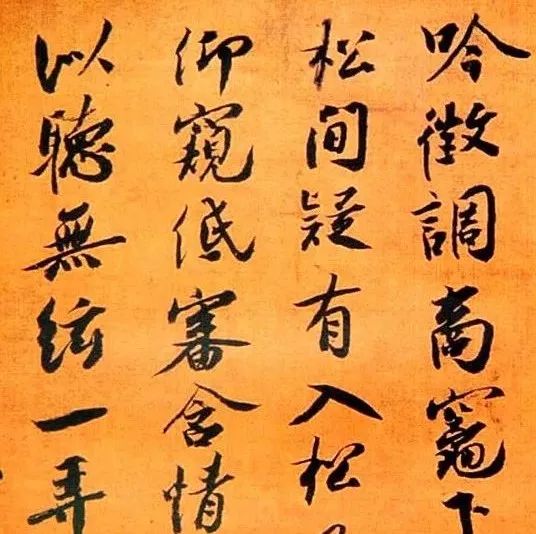 吟徵調商竈下
松間疑有入松
仰窺低審含情
以聽無絃一弄